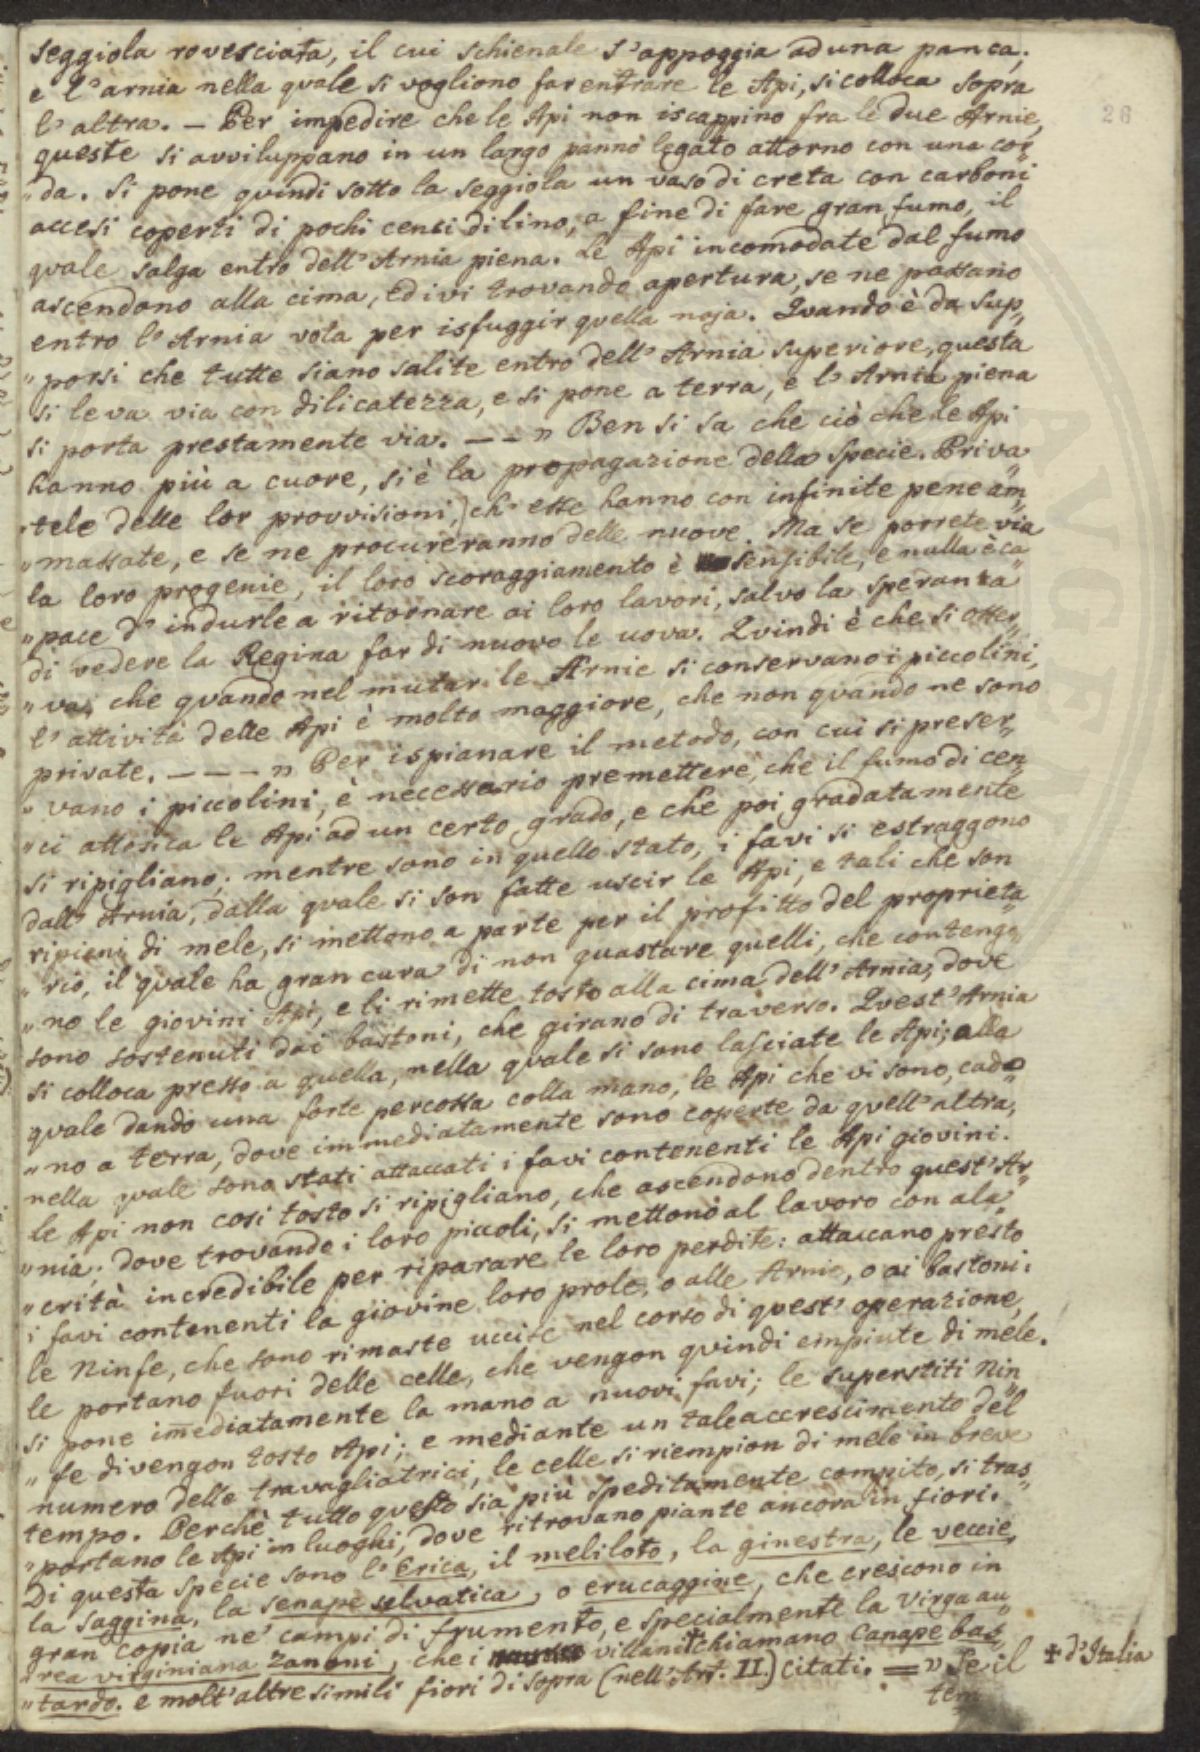 26
seggiola rovesciata, il cui schienale s'appoggia ad una panca,
e l'arnia nella quale si vogliono far entrare le Api, si colloca sopra
l'altra. — Per impedire che le Api non iscappino fra le due Arnie,
queste si avviluppano in un largo panno legato attorno con una cor„
„da. Si pone quindi sotto la seggiola un vaso di creta con carboni
accesi coperti di pochi cenci di lino, a fine di fare gran fumo, il
quale salga entro dell'Arnia piena. Le Api incomodate dal fumo
ascendono alla cima, ed ivi trovando apertura, se ne passano
entro l'Arnia vota per isfuggir quella noja. Quando è da sup„
„porsi che tutte siano salite entro dell'Arnia superiore, questa
si leva via con dilicatezza, e si pone a terra, e l'Arnia piena
si porta prestamente via. — — » Ben si sa che ciò che le Api
hanno più a cuore, si è la propagazione della specie. Priva„
„tele delle lor provvisioni, ch'esse hanno con infinite pene am„
„massate, e se ne procureranno delle nuove. Ma se porrete via
la loro progenie, il loro scoraggiamento è sensibile, e nulla è ca„
„pace d'indurle a ritornare ai loro lavori, salvo la speranza
di vedere la Regina far di nuovo le uova. Quindi è che si osser„
„va, che quando nel mutar le Arnie si conservano i piccolini,
l'attività delle Api è molto maggiore, che non quando ne sono
private. — — — » Per ispianare il metodo, con cui si preser„
„vano i piccolini, è necessario premettere, che il fumo di cen„
„ci attosica le Api ad un certo grado, e che poi gradatamente
si ripigliano; mentre sono in quello stato, i favi si estraggono
dall'Arnia, dalla quale si son fatte uscir le Api, e tali che son
ripieni di mele, si mettono a parte per il profitto del proprieta„
„rio, il quale ha gran cura di non guastare quelli, che contengo„
„no le giovini Api, e li rimette tosto alla cima dell'Arnia, dove
sono sostenuti dai bastoni, che girano di traverso. Quest'Arnia
si colloca presso a quella, nella quale si sono lasciate le Api; alla
quale dando una forte percossa colla mano, le Api che vi sono, cado„
„no a terra, dove immediatamente sono coperte da quell'altra,
nella quale sono stati attaccati i favi contenenti le Api giovini.
le Api non così tosto si ripigliano, che ascendono dentro quest'Ar„
„nia; dove trovando i loro piccoli, si mettono al lavoro con ala„
„crità incredibile per riparare le loro perdite: attaccano presto
i favi contenenti la giovine loro prole, o alle Arnie, o ai bastoni:
le Ninfe, che sono rimaste uccise nel corso di quest'operazione,
le portano fuori delle celle, che vengon quindi empiute di mele.
si pone imediatamente la mano a nuovi favi; le superstiti Nin„
„fe divengon tosto Api; e mediante un tale accrescimento del
numero delle travagliatrici, le celle si riempion di mele in breve
tempo. Perchè tutto questo sia più speditamente compito, si tras„
„portano le Api in luoghi, dove ritrovano piante ancora in fiori.
Di questa specie sono l'Erica, il meliloto, la ginestra, le veccie,
la saggina, la senape selvatica, o erucaggine, che crescono in
gran copia ne' campi di frumento, e specialmente la Virga au„
„rea virginiana Zanoni, che i villani ✝ chiamano Canape bas„
„tardo. e molt'altre simili fiori di sopra (nell'Art. II.) citati. = » Se il
✝ d'Italia
tem